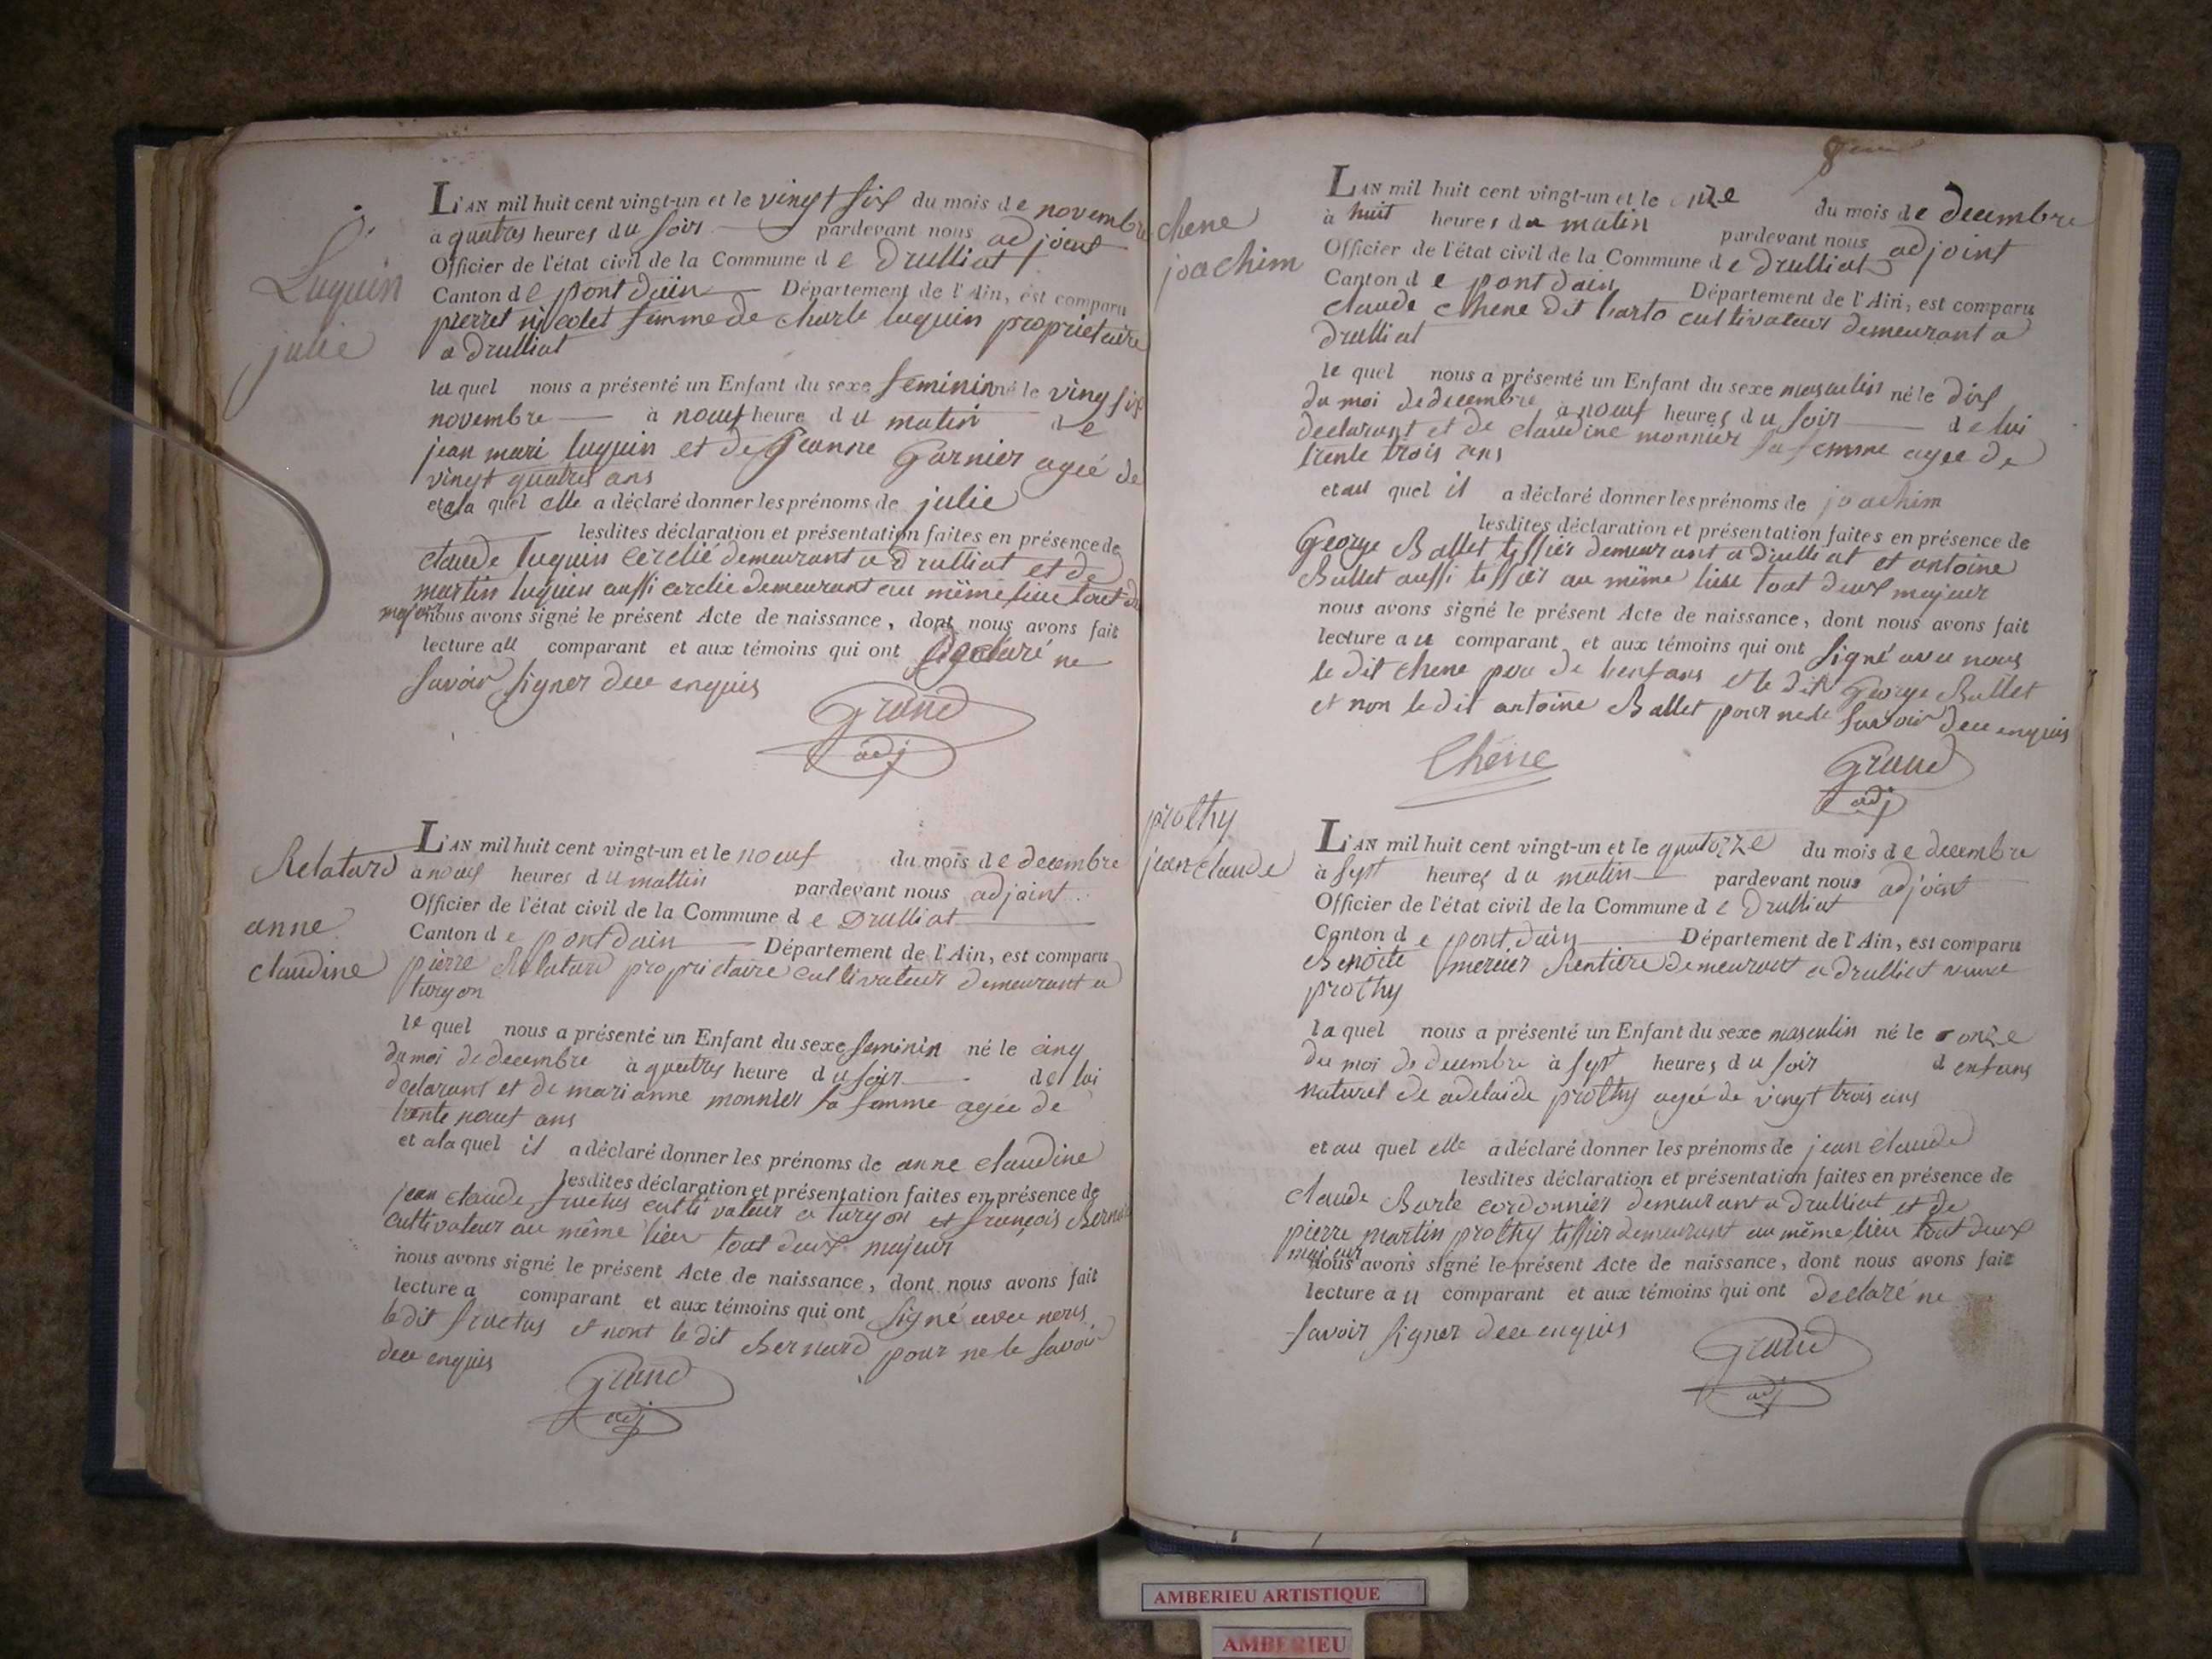 Luquin
julie
L'AN mil huit cent vingt-un et le vingt six du mois de novembre
à quatres heures du soir pardevant nous adjoint
Officier de l'état civil de la Commune de Drulliat
Canton de pont dain Département de l'Ain, est comparu
pierret nicolet femme de charle luquin proprietaire
a drulliat
la quel nous a présenté un Enfant du sexe feminin né le ving six
novembre à neuf heure du matin de
jean mari luquin et de jeanne Garnier ageé de
vingt quatres ans
et a la quel elle a déclaré donner les prénoms de julie
lesdites déclaration et présentation faites en présence de
claude luquin cerclié demeurant a drulliat et de
martin luquin aussi cerclie demeurant au même lieu tout
majeur nous avons signé le présent Acte de naissance, dont nous avons fait
lecture au comparant et aux témoins qui ont déclaré ne
savoir signer dee enquis
Grand
adj
Relatard
anne
claudine
L'AN mil huit cent vingt-un et le noeuf du mois de decembre
à noeuf heures du mattin pardevant nous adjoint
Officier de l'état civil de la Commune de Drulliat
Canton de pont dain Département de l'Ain, est comparu
pierre Relatard proprietaire cultivateur demeurant a
turgon
le quel nous a présenté un Enfant du sexe feminin né le cinq
du moi de decembre à quatres heure du soir de lui
declarant et de marianne monnier sa femme ageé de
trente noeuf ans
et a la quel il a déclaré donner les prénoms de anne claudine
lesdites déclaration et présentation faites en présence de
jean claude fructus cultivateur a turgon et françois Bernard
cultivateur au même lieu tout deux majeur
nous avons signé le présent Acte de naissance, dont nous avons fait
lecture a comparant et aux témoins qui ont signé avec nous
le dit fructus et nont le dit Bernard pour ne le savoir
dee enquis
Grand
adj
chene
joachim
L'AN mil huit cent vingt-un et le onze du mois de decembre
à huit heures du matin pardevant nous adjoint
Officier de l'état civil de la Commune de Drulliat
Canton de pont dain Département de l'Ain, est comparu
claude chene dit barto cultivateur demeurant a
drulliat
le quel nous a présenté un Enfant du sexe masculin né le dix
du moi de decembre à noeuf heures du soir de lui
declarant et de claudine monnier sa femme agee de
trente trois ans
et au quel il a déclaré donner les prénoms de joachim
lesdites déclaration et présentation faites en présence de
George Ballet tissier demeurant a drulliat et antoine
Ballet aussi tissier au même lieu tout deux majeur
nous avons signé le présent Acte de naissance, dont nous avons fait
lecture au comparant et aux témoins qui ont signé avec nous
le dit chene pere de lenfans et le dit George Ballet
et non le dit antoine Ballet pour ne le savoir dee enquis
Chêne
Grand
adj
prothy
jean claude
L'AN mil huit cent vingt-un et le quatorze du mois de decembre
à sept heures du matin pardevant nous adjoint
Officier de l'état civil de la Commune de Drulliat
Canton de pont dain Département de l'Ain, est comparu
Benoite mercier Rentiere demeurant a drulliat veuve
prothy
la quel nous a présenté un Enfant du sexe masculin né le onze
du moi de decembre à sept heures du soir d enfans
naturel de adelaide prothy ageé de vingt trois ans
et au quel elle a déclaré donner les prénoms de jean claude
lesdites déclaration et présentation faites en présence de
claude Barle cordonnier demeurant a drulliat et de
pierre martin prothy tissier demeurant au même lieu tout deux
majeur nous avons signé le présent Acte de naissance, dont nous avons fait
lecture au comparant et aux témoins qui ont declaré ne
savoir signer dee enquis
Grand
adj
AMBERIEU ARTISTIQUE
AMBERIEU